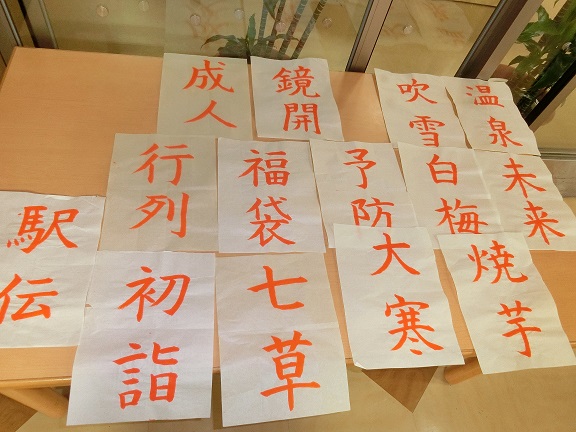 成人
鏡開
吹雪
温泉
行列
福袋
予防
白梅
未来
駅伝
初詣
七草
大寒
焼芋